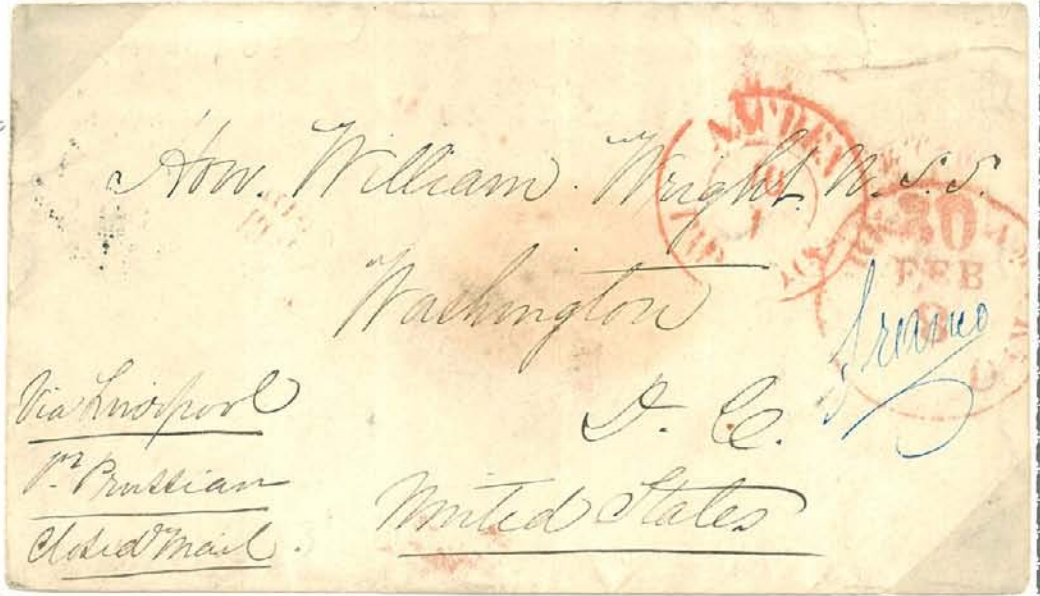 Hon. William Wright. U.S.S.
Washington
D. C.
United States
Via Liverpool
Pr. Prussian
Closed Mail.
30
FEB
Franco